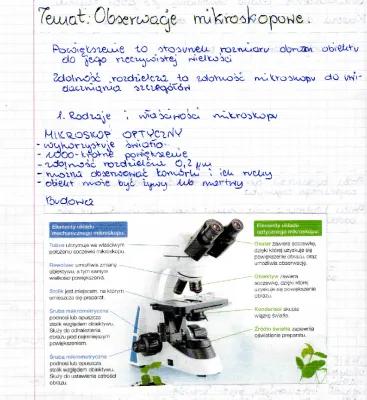 Temat: Obserwacje mikroskopowe.
Powiększenie to stosunek rozmiaru obrazu obiektu
do jego rzeczywistej wielkości
Zdolność rozdzielcza to zdolność mikroskopu do uwi-
daczniania szczegółów
1. Rodzaje i właściwości mikroskopu
MIKROSKOP OPTYCZNY
- wykorzystuje światło
- 1000-krotne powiększenie
- zdolność rozdzielcza 0,2 μm
- można obserwować komórki i ich ruchy
- obiekt może być żywy lub martwy
Budowa
Elementy układu
mechanicznego mikroskopu:
Tubus utrzymuje we właściwym
położeniu soczewki mikroskopu.
Rewolwer umożliwia zmianę
obiektywu, a tym samym
wielkości powiększenia.
Stolik jest miejscem, na którym
umieszcza się preparat.
Śruba makrometryczna
podnosi lub opuszcza
stolik względem obiektywu.
Służy do odnalezienia
obrazu pod najmniejszym
powiększeniem.
Śruba mikrometryczna
podnosi lub opuszcza
stolik względem obiektywu.
Służy do ustawienia ostrości
obrazu.
Elementy układu
optycznego mikroskopu:
Okular zawiera soczewki,
dzięki której uzyskuje się
powiększenie obrazu, oraz
umożliwia obserwację.
Obiektyw zawiera
soczewki, dzięki której
uzyskuje się powiększenie
obrazu.
Kondensor skupia
wiązkę światła.
Źródło światła zapewnia
oświetlenie preparatu.